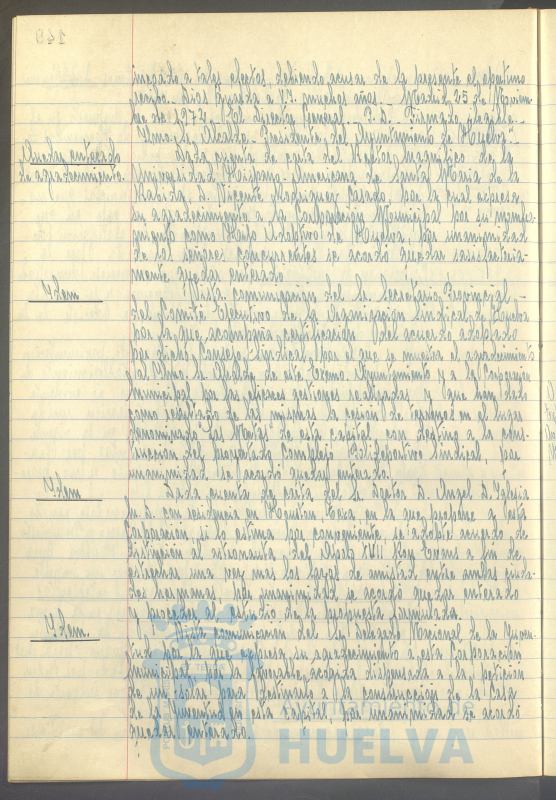 149
incoado a tales efectos, debiendo acusar de la presente el oportuno
recibo.- Dios guarde a V.I. muchos años.- Madrid, 25 de Noviem-
bre de 1972.- El Director General.- P.D. Firmado ilegible.-
Ilmo. Sr. Alcalde-Presidente del Ayuntamiento de Huelva".
Quedar enterado
de agradecimiento.
Dada cuenta de carta del Rector Magnífico de la
Universidad Hispano-Americana de Santa María de la
Rábida, D. Vicente Rodríguez Casado, por la cual expresa
su agradecimiento a la Corporación Municipal por su nombra-
miento como Hijo Adoptivo de Huelva, por unanimidad
de los señores concurrentes se acordó quedar satisfactoria-
mente quedar enterado.
Idem
Vista comunicación del Sr. Secretario Provincial
del Comité Ejecutivo de la Organización Sindical de Huelva
por la que acompaña certificación del acuerdo adoptado
por dicho Consejo Sindical, por el que se muestra el agradecimiento
al Ilmo. Sr. Alcalde de este Excmo. Ayuntamiento y a la Corporación
Municipal por las eficaces gestiones realizadas y que han dado
como resultado de las mismas la cesión de terrenos en el lugar
denominado "Las Metas" de esta capital, con destino a la cons-
trucción del proyectado Complejo Polideportivo Sindical, por
unanimidad se acordó quedar enterado.
Idem
Dada cuenta de carta del Sr. Doctor D. Angel D. Iglesia
M.D. con residencia en Houston Texas, en la que propone a esta
Corporación, si lo estima por conveniente, se adopte acuerdo de
distinción al astronauta del Apolo XVII Ron Evans a fin de
estrechar una vez mas los lazos de amistad entre ambas ciuda-
des hermanas, por unanimidad se acordó quedar enterado
y proceder a estudio de la propuesta formulada.
Idem.
Vista comunicación del Sr. Delegado Nacional de la Juven-
tud por la que expresa su agradecimiento a esta Corporación
municipal por la favorable acogida dispensada a la petición
de un solar para destinarlo a la construcción de la Casa
de la Juventud en esta capital, por unanimidad se acordó
quedar enterado.
Ayuntamiento de
HUELVA